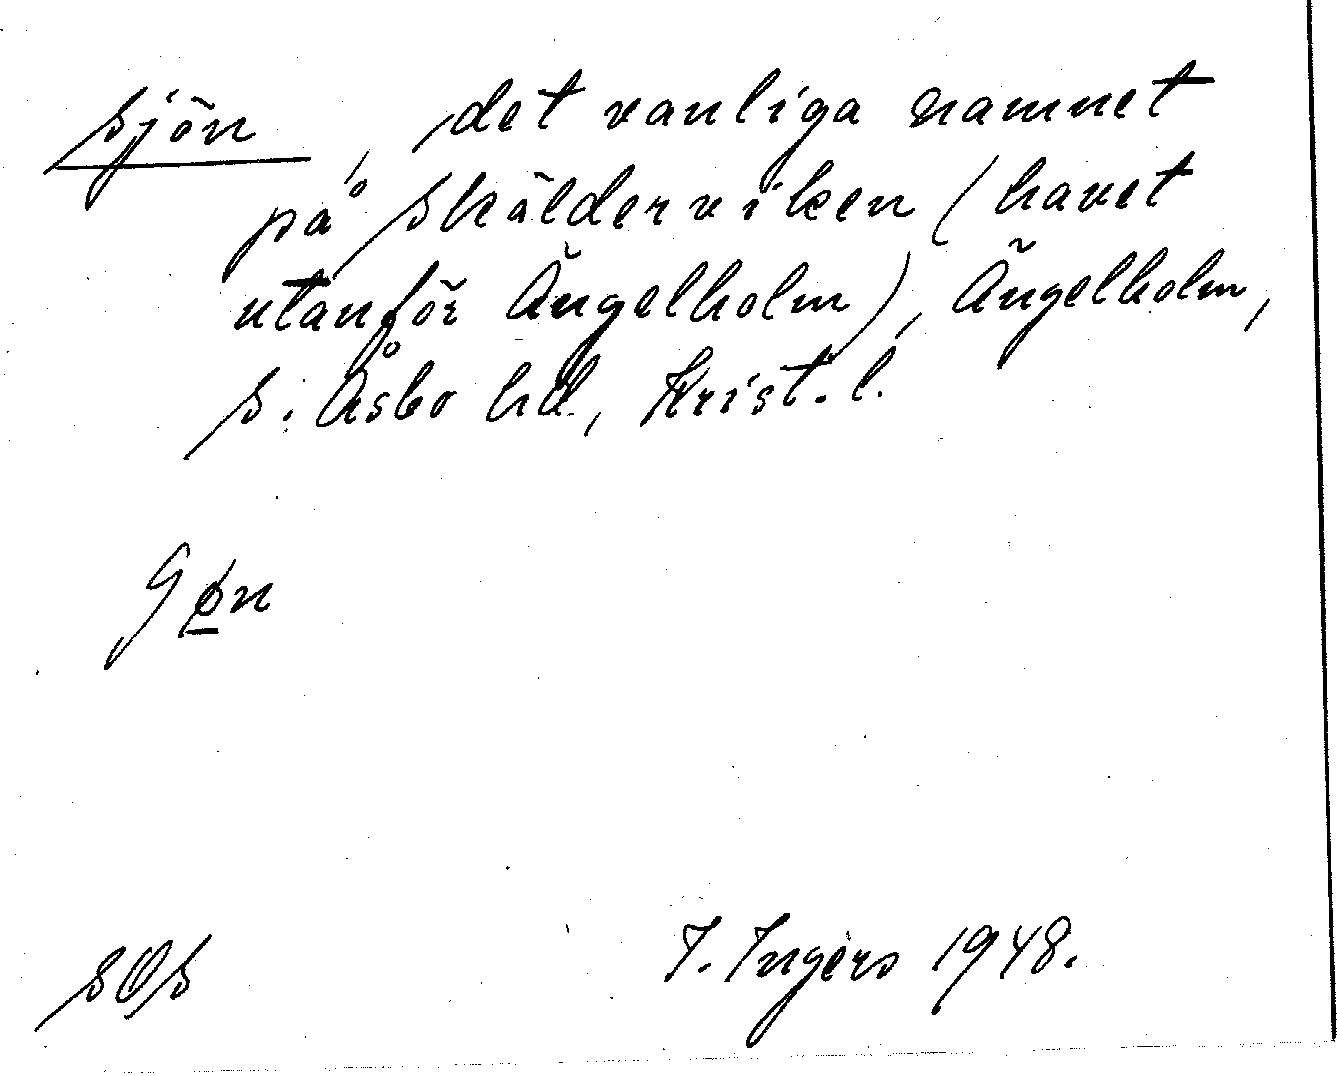 sjön, det vanliga namnet
på Skälderviken (havet
utanför Ängelholm), Ängelholm,
S. Åsbo hd, Krist. l.
sOs
I. Ingers 1948.